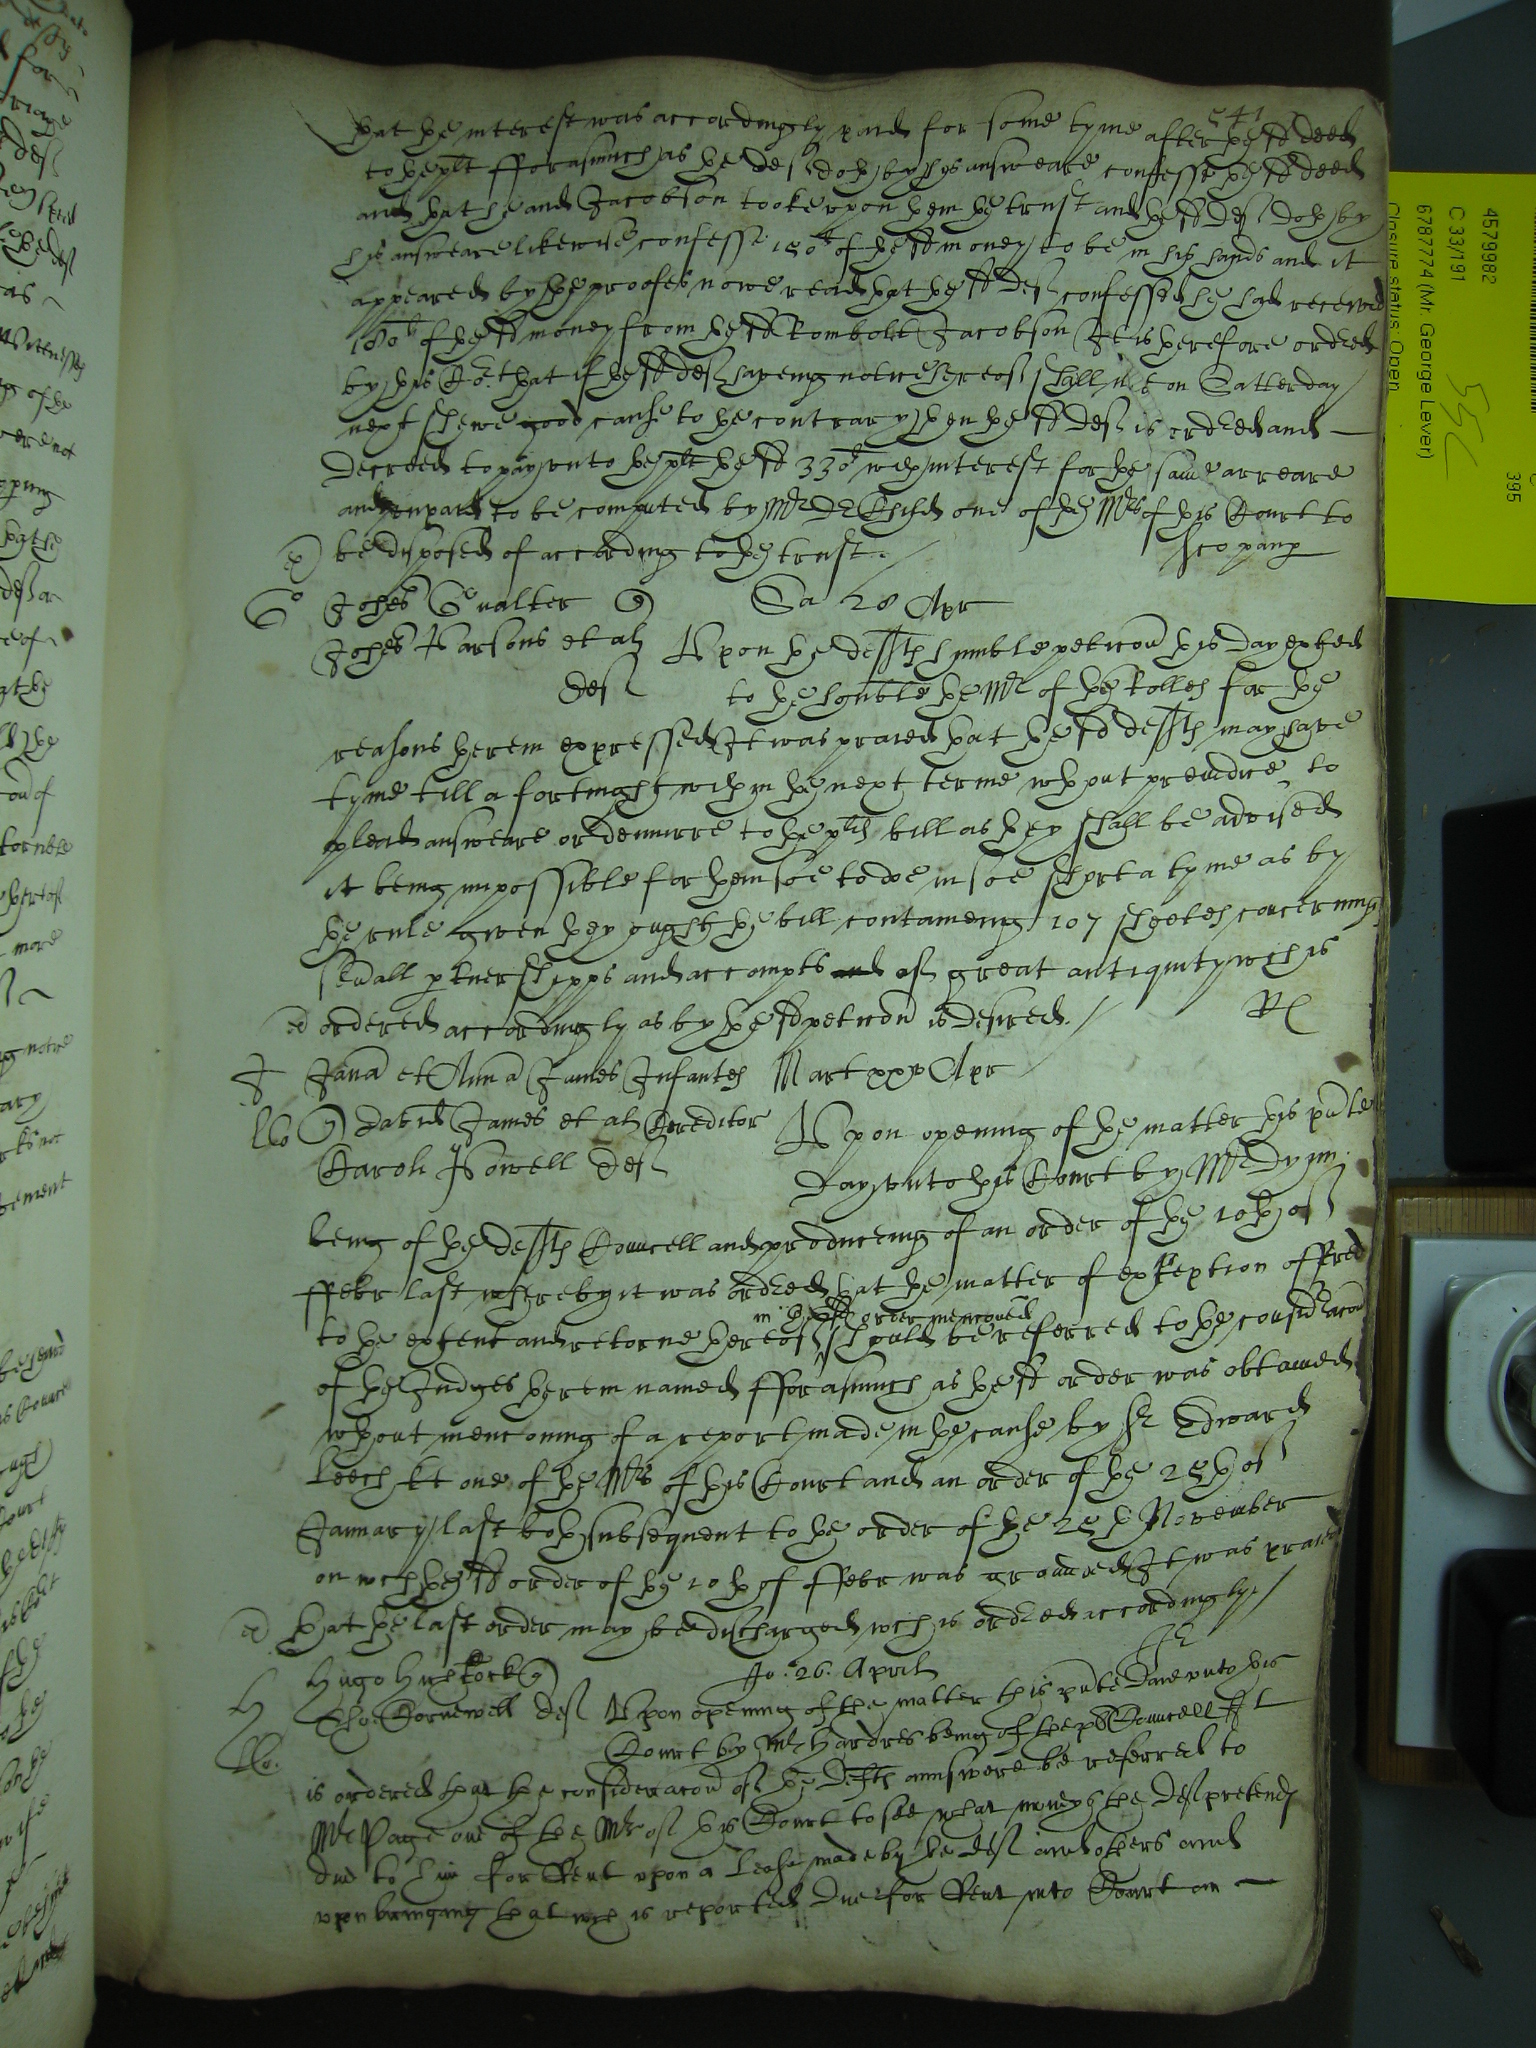 541
that the interest was accordingly paid for some tyme after the sd deed
to the plt fforasmuch as the deft doth by his answeare confesse the sd deed
and that he and Jacobson tooke upon them the trust and the sd deft doth by
his answeare likewise confesse 150l of the sd money to be in his hands and it
appeared by the proofes nowe read that the sd deft confessed he had received
180l of the sd money from the sd Rombolt Jacobson It is therefore ordred
by this Cort that if the sd deft haveing notice hereof shall not on Satterday
next shewe good cause to the contrary then the sd deft is ordred and
decreed to pay unto the plt the sd 330l wth interest for the same arreare
and unpaid to be computed by Mr Dr Child one of the Mrs of this Court to
be disposed of according to the trust
Johes Gualter
Sa 28 Apr
Johes Parsons et al
deft
Upon the defts humble peticon this day exhited
to the honble the Mr of the Rolles for the
reasons therein expressed It was praied that the sd defts may have
tyme till a fortnight wthin the next terme wthout preiudice to
plead answeare or demurre to the plts bill as they shall be advised
it being impossible for them soe to doe in soe short a tyme as by
the rule given they ought the bill containeing 107 sheetes concerning
sevall ptnershipps and accompts of great antiquity wch is
ordered accordingly as by the sd peticon is desired
Jana et Anna James Infantes
Mart xxv Apr
David James et al Creditor
Caroli Howell deft
Upon opening of the matter this pnte
day unto this Court by Mr Dynn
being of the defts Councell and produceing of an order of the 10th of
ffebr last whereby it was ordred that the matter of exception offred
in the sd order mencoued
to the extent and retorne thereof should be referred to the consideracon
of the Judges therein named fforasmuch as the sd order was obtained
wthout mencioning of a report made in the cause by Sr Edward
Leech kt one of the Mrs of this Court and an order of the 28th of
January last both subsequent to the order of the 28th November
on wch the sd order of the 10th of ffebr was grounded It was praied
that the last order may be discharged wch is ordred accordingly
Hugo
Jo: 26. April
Cornewell deft
Upon opening of the matter this pnte Daie unto this
Court by Mr Hardres being of the plts Councell It
is ordered that the consideracon of the Defts answere be referred to
Mr Page one of the Mrs of this Court to see what moneys the Deft pretends
due to him for Rent upon a lease made by the deft and others and
upon bringing that wch is reported due for Rent into Court an
4579982
C 33/191
6787774 (Mr. George Lever)
Closure status: Open
395